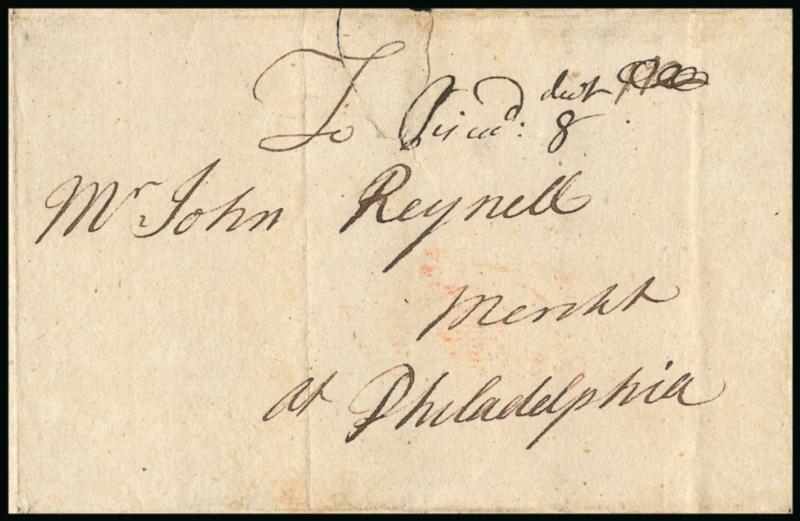 dwt
To 8
Mr. John Reynell
Mercht
at Philadelphia